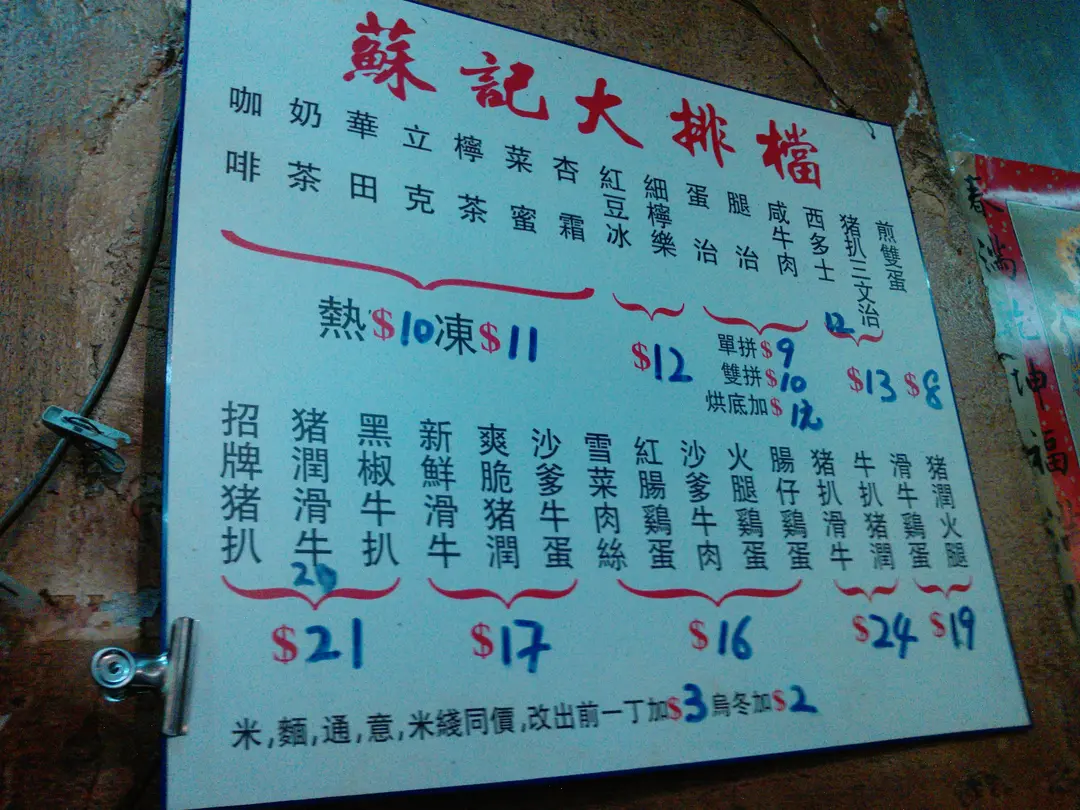 蘇記大排檔
咖啡
奶茶
華田
立克
檸茶
菜蜜
杏霜
紅豆冰
細檸樂
蛋治
腿治
咸牛肉
西多士
猪扒三文治
煎雙蛋
熱$10凍$11
$12
單拼$9
雙拼$10
烘底加$1元
12
$13
$8
招牌猪扒
猪潤滑牛
20
黑椒牛扒
新鮮滑牛
爽脆猪潤
沙爹牛蛋
雪菜肉絲
紅腸鷄蛋
沙爹牛肉
火腿鷄蛋
腸仔鷄蛋
猪扒滑牛
牛扒猪潤
滑牛鷄蛋
猪潤火腿
$21
$17
$16
$24
$19
米,麵,通,意,米綫同價,改出前一丁加$3烏冬加$2
春滿乾坤福